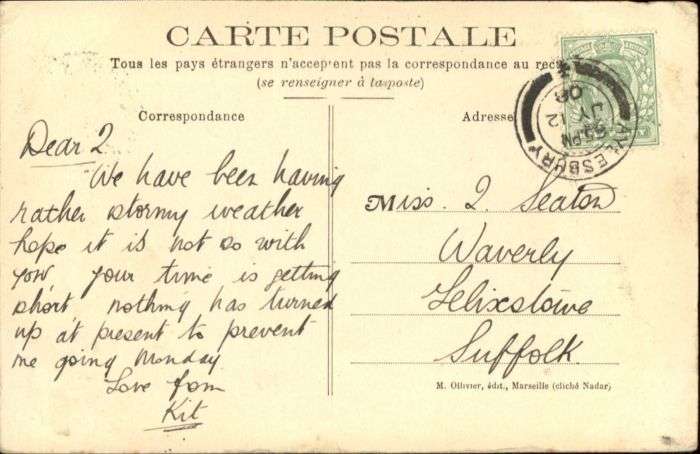 CARTE POSTALE
Tous les pays étrangers n'acceptent pas la correspondance au rec
(se renseigner à la poste)
Correspondance
Adresse
AYLESBURY
PM
JY 12
08
Dear 2
We have been having
rather stormy weather
hope it is not so with
you your time is getting
short nothing has turned
up at present to prevent
me going Monday
Love from
Kit
Miss. 2. Seaton
Waverly
Felixstowe
Suffolk
M. Ollivier, édit., Marseille (cliché Nadar)